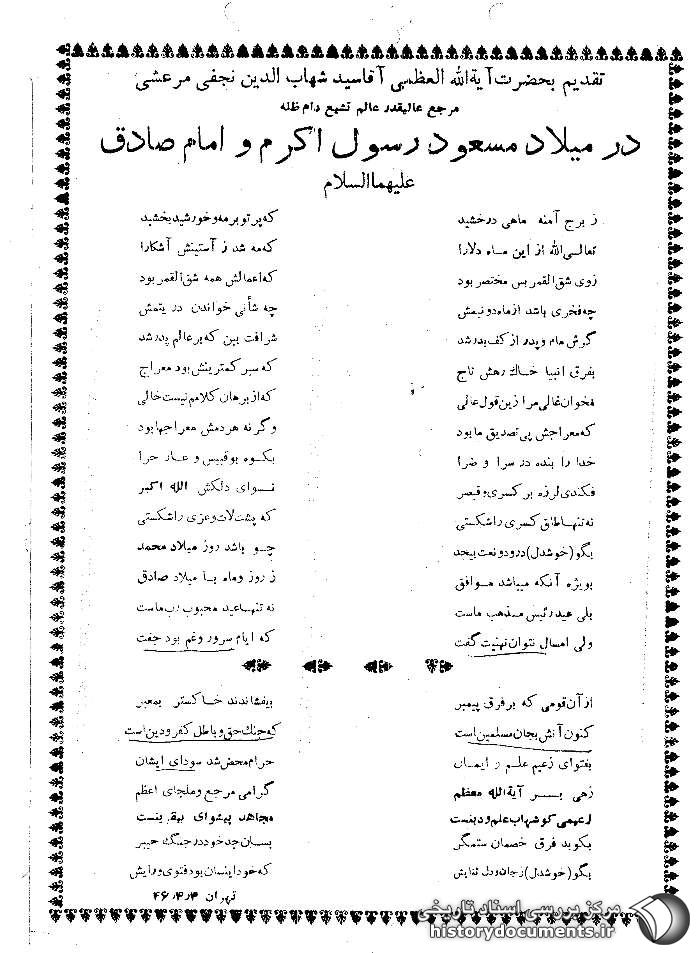 تقدیم بحضرت آیة الله العظمی آقاسید شهاب الدین نجفی مرعشی
مرجع عالیقدر عالم تشیع دام ظله
در میلاد مسعود رسول اکرم و امام صادق
علیهماالسلام
ز برج آمنه ماهی درخشید که پرتو بر مه و خورشید بخشید
تعالی الله از این ماه دلارا که مه شد ز آستینش آشکارا
زوی شق القمر بس مختصر بود که اعمالش همه شق القمر بود
چه فخری باشد از ماه دونیمش چه شأنی خواندن در یتمش
گرش مام و پدر از کف بدر شد شرافت بین که بر عالم پدر شد
بفرق انبیا خاک رهش تاج که سیر کمترینش بود معراج
مخوان غالی مرا زین قول عالی که از برهان کلامم نیست خالی
که معراجش پی تصدیق ما بود وگرنه هردمش معراجها بود
خدا را بنده در سرا و ضرا بکوه بوقبیس و غار حرا
فکندی لرزه بر کسری و قیصر نوای دلکش الله اکبر
نه تنها طاق کسری را شکستی که پشت لات و عزی را شکستی
بگو (خوشدل) درود و نعت بیحد چو باشد روز میلاد محمد
بویژه آنکه میباشد موافق ز روز و ماه با میلاد صادق
بلی عید رئیس مذهب ماست نه تنها عید محبوب رب ماست
ولی امسال نتوان تهنیت گفت که ایام سرور و غم بود جفت
از آن قومی که بر فرق پیمبر بیفشاندند خاکستر بمعبر
کنون آتش بجان مسلمین است که جنگ حق و باطل کفر و دین است
بفتوای زعیم علم و ایمان حرام محض شد سودای ایشان
زهی بر آیة الله معظم گرامی مرجع و ملجای اعظم
زعیمی کو شهاب علم و دینست مجاهد پیشوای بیقرینست
بکوبد فرق خصمان ستمگر بسان جد خود در جنگ خیبر
بگو (خوشدل) ز جان و دل ثنایش که خود اینسان بود فتوی و رایش
تهران ۴۶٫۴٫۳
مرکز بررسی اسناد تاریخی
historydocuments.ir